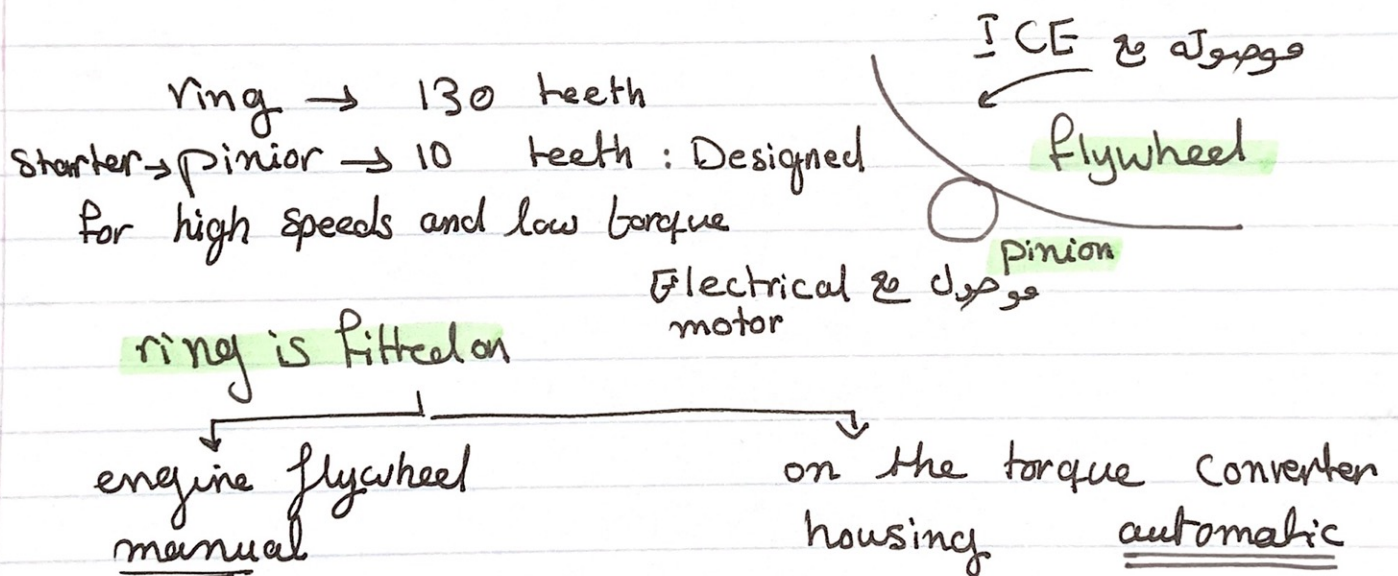 ICE موصوله مع
ring → 130 teeth
Starter → pinior → 10 teeth : Designed
for high speeds and low torque
flywheel
pinion
موصول مع Electrical
motor
ring is fitted on
engine flywheel
manual
on the torque converter
housing automatic